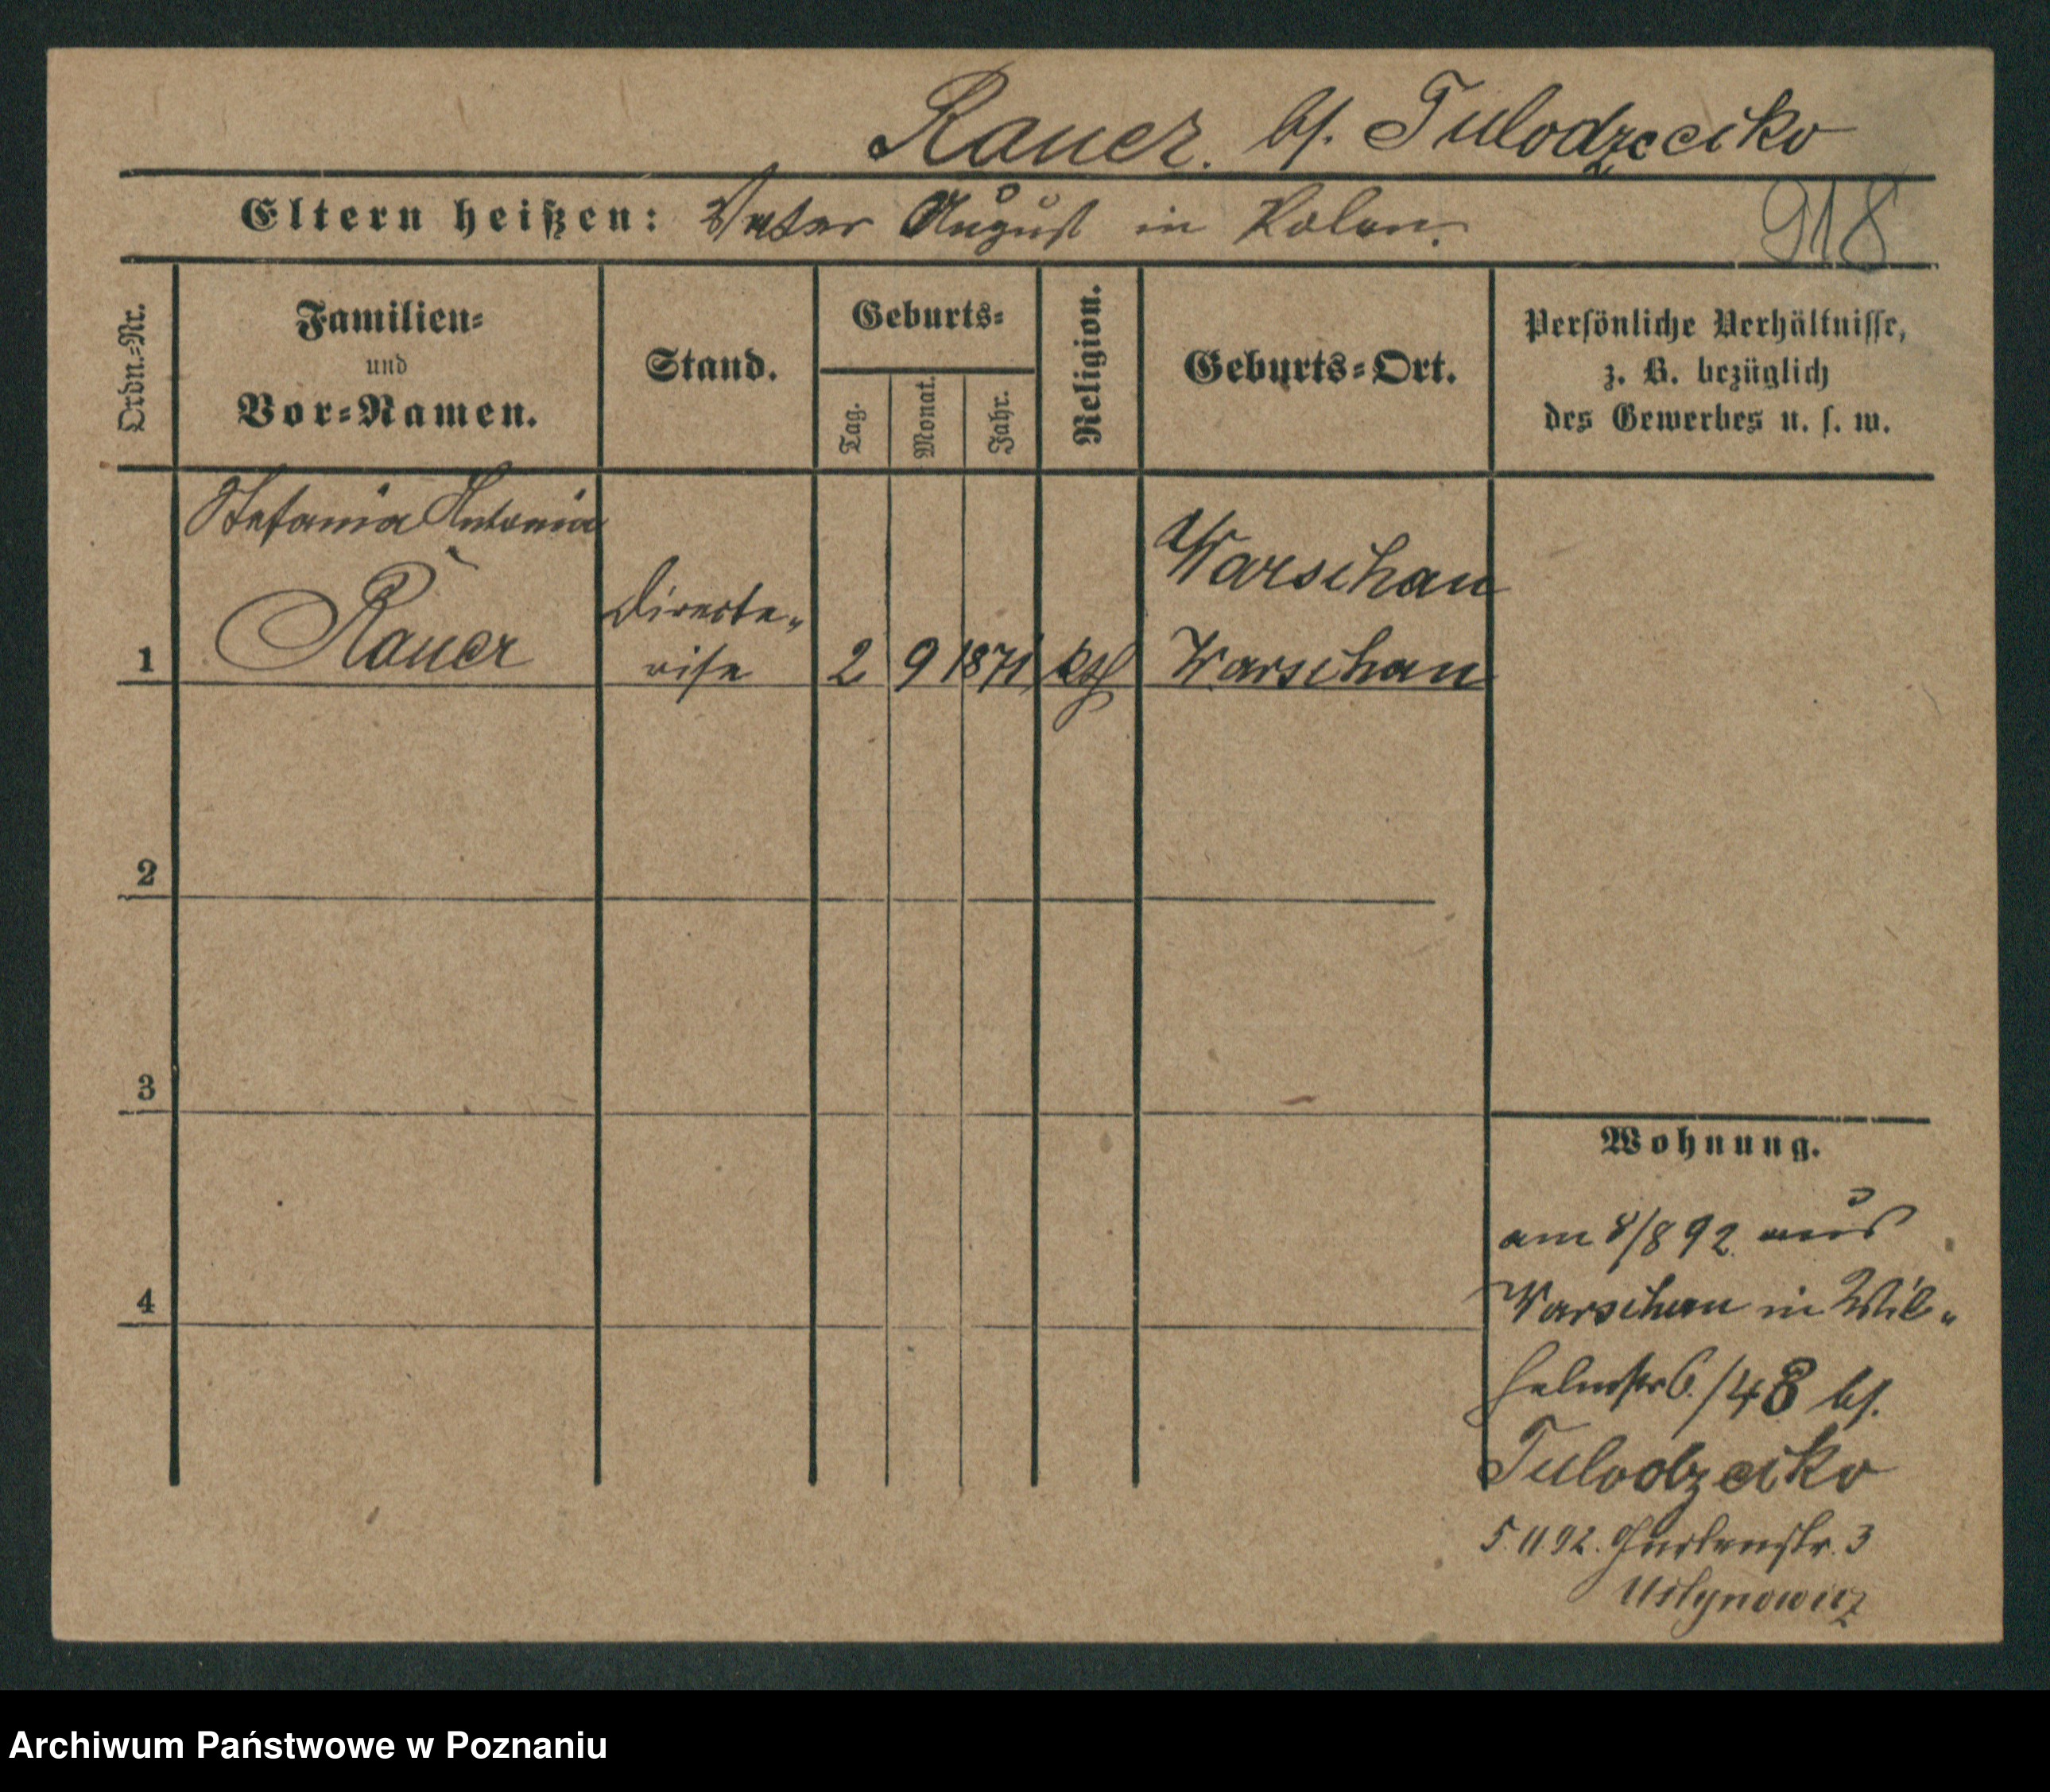 Rauer. bh. Tulodzecciko
Eltern heißen: Vater August in Polen.
918
Ordn.-Nr.
Familien-
und
Vor-Namen.
Stand.
Geburts-
Tag.
Monat.
Jahr.
Religion.
Geburts-Ort.
Persönliche Verhältnisse,
z. B. bezüglich
des Gewerbes u. s. w.
Stefania Antonia
Rauer
Directe-
rise
1
2 9 1871 kth
Warschau
Warschau
2
3
4
Wohnung.
am 8/8 92. aus
Warschau in Wil-
helmstr 6./48 bh.
Tulodzeciko
5.11 92. Gartenstr. 3
Ustynowicz
Archiwum Państwowe w Poznaniu